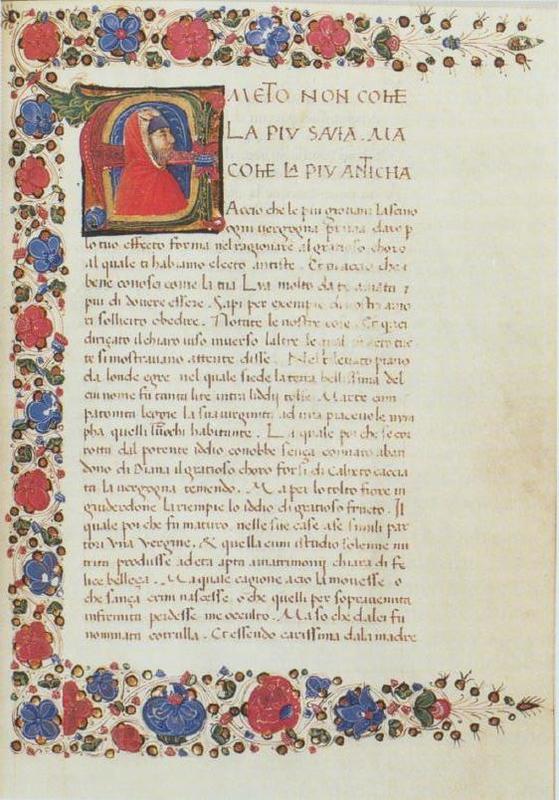 AMETO NON COME
LA PIV SAVIA. MA
COME LA PIV ANTICHA
Accio che le piu giovani lascino
ogni vergogna prima daro p
lo tuo effecto forma nel ragionare al gratioso choro
al quale ti habiamo electo antiste. Et
bene conosci come la tua Lya molto da te amata
piu di dovere essere. Sapi per exempio di nostri
ti sollicito obedire. Notate le nostre cose. Et quei
dirizato il chiaro viso inverso laltre
te si mostravano attente disse. Nel rilevato piano
da londe egee nel quale siede la terra bellissima del
cui nome fu tanta lite intra liddij
patomia leggie la sua virginita ad una piacevole nym
pha quelli luochi habitante. La quale poi che se cor
rotta dal potente iddio conobbe senza connato aban
dono di Diana il gratioso choro forsi di Calixto caccia
ta la vergogna temendo. Ma per lo tolto fiore in
guiderdone la riempie lo iddio di gratioso fructo. Il
quale poi che fu maturo, nelle sue case a se simili par
tori una vergine. & quella cum istudio solenne nu
trita produsse ad eta apta a matrimonij chiara di fe
lice belleza. Ma quale cagione a cio la movesse o
che sanza crim nascesse, o che quelli per sopravenuta
infirmita perdesse me occulto. Ma so che da lei fu
nominata cotrulla. Et essendo carissima dala madre